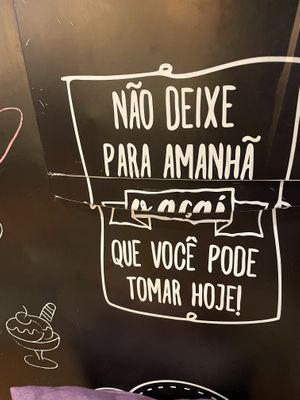 NÃO DEIXE
PARA AMANHÃ
o açaí
QUE VOCÊ PODE
TOMAR HOJE!